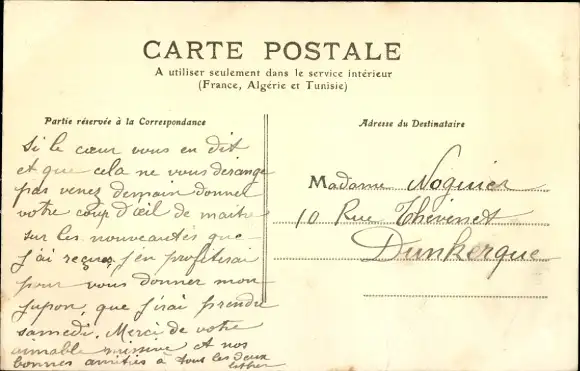 CARTE POSTALE
A utiliser seulement dans le service intérieur
(France, Algérie et Tunisie)
Partie réservée à la Correspondance
Adresse du Destinataire
Si le cœur vous en dit
et que cela ne vous dérange
pas venez demain donner
votre coup d'œil de maitre
sur les nouveautés que
j'ai reçues, j'en profiterai
pour vous donner mon
jupon, que j'irai prendre
samedi. Merci de votre
aimable missive et nos
bonnes amitiés à tous les deux
Esther
Madame Noguier
10 Rue Thévenet
Dunkerque